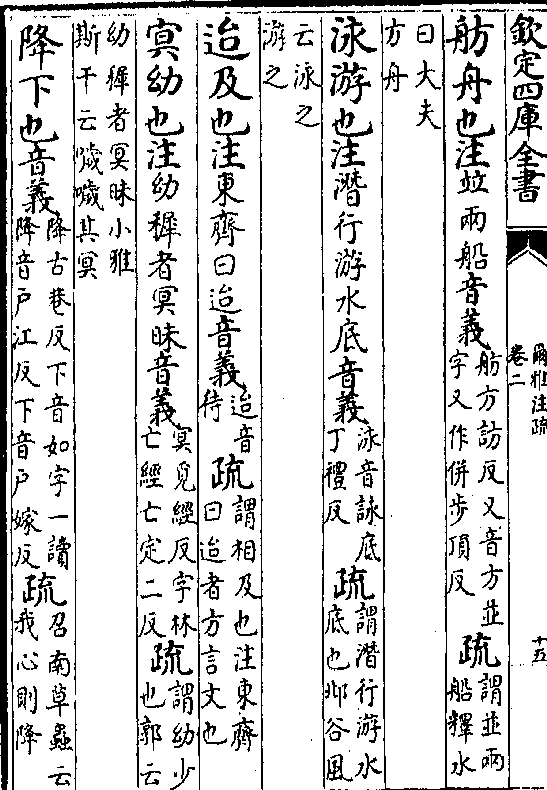 欽定四庫全書
爾雅注疏
卷二
十五
舫舟也注竝兩船音義舫方訪反又音方竝字又作併步頂反疏謂竝兩船釋水
曰大夫方舟
泳游也注潛行游水底音義泳音詠底丁禮反疏謂潛行游水底也邶谷風
云泳之游之
迨及也注東齊曰迨音義迨音待疏謂相及也注東齊曰迨者方言文也
冥幼也注幼稺者冥昧音義冥覓經反字林亡經亡定二反疏謂幼少也郭云
幼稺者冥昧小雅斯干云噦噦其冥
降下也音義降古巷反下音如字一讀降音戶江反下音戶嫁反疏召南草蟲云我心則降